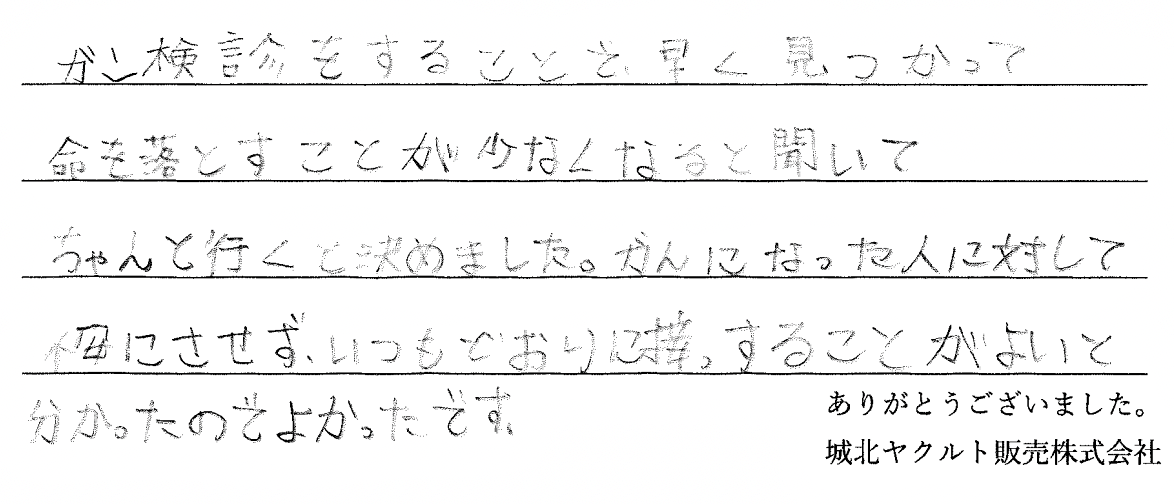 ガン検診をすることで、早く見つかって
命を落とすことが少なくなると聞いて
ちゃんと行くと決めました。がんになった人に対して
にさせず、いつもどおりにすることがよいと
分かったのでよかったです。
ありがとうございました。
城北ヤクルト販売株式会社